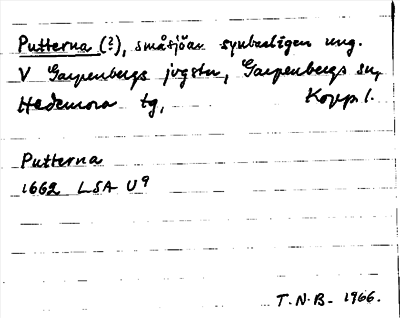 Putterna (?), småsjöar synbarligen ung.
V Garpenbergs jvgstn, Garpenbergs sn,
Hedemora tg, Kopp l.
Putterna
1662 LSA U9
T.N.B. 1966.